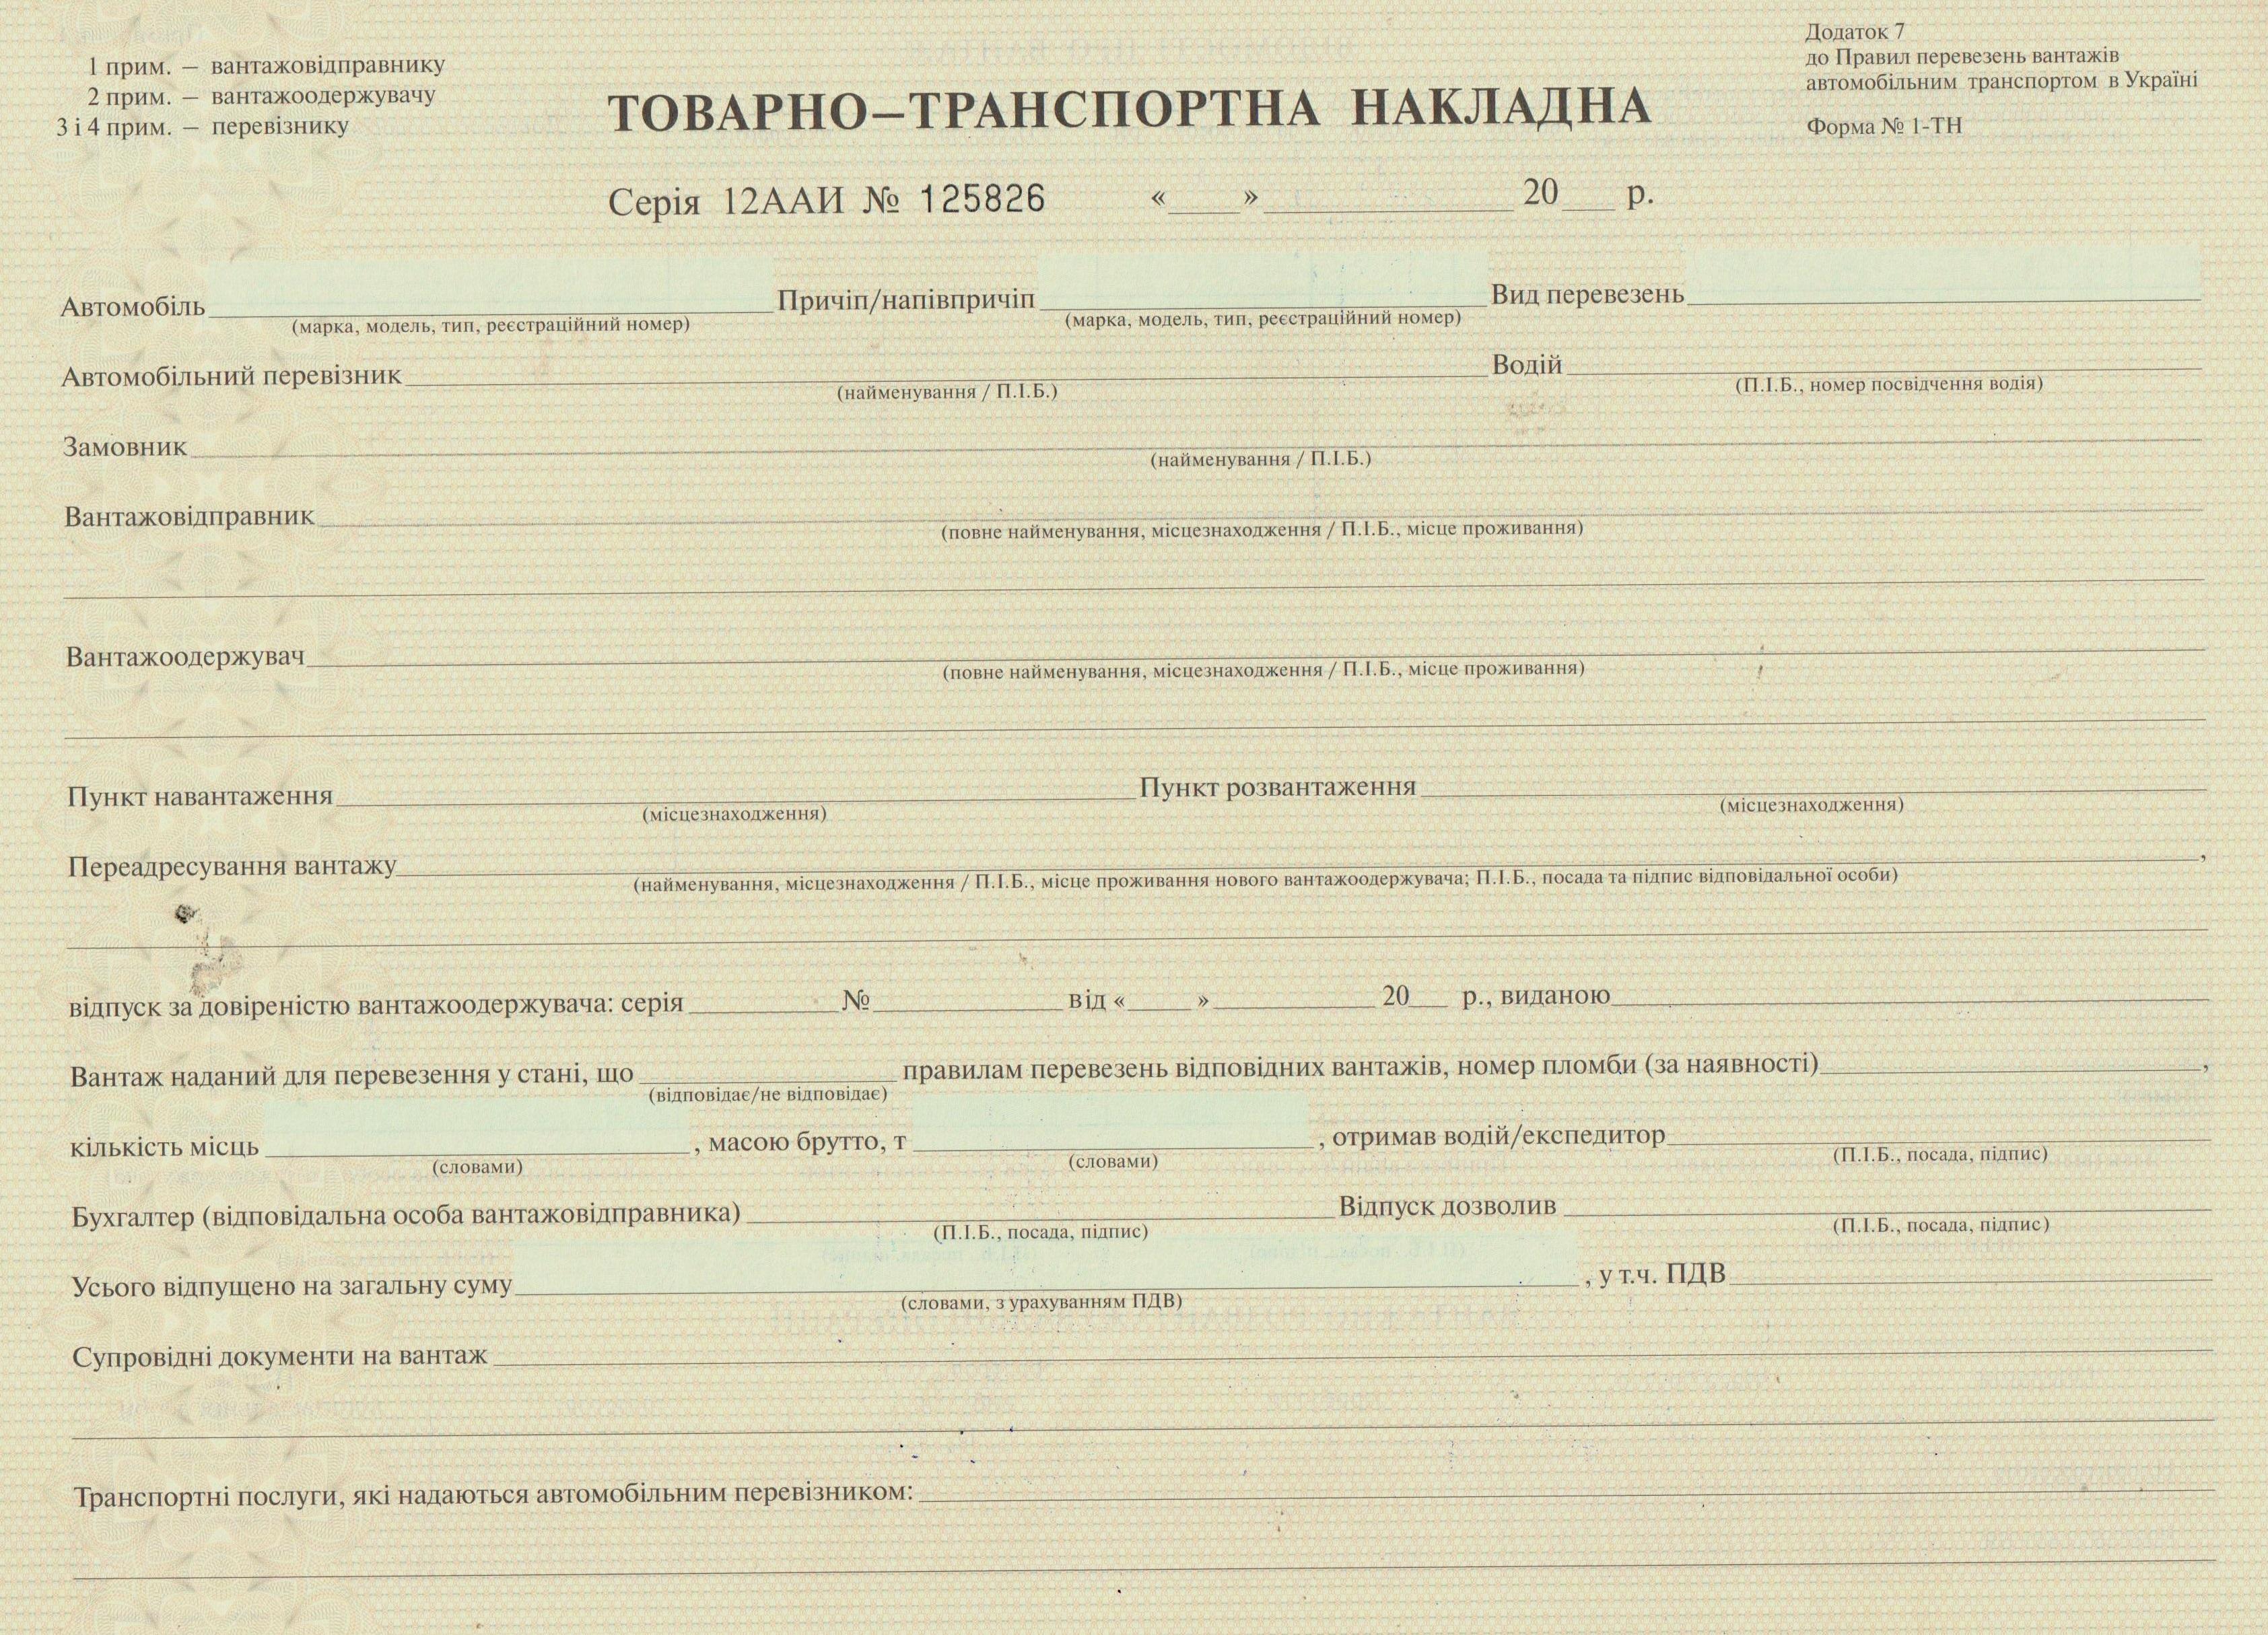 1 прим. — вантажовідправнику
2 прим. — вантажоодержувачу
3 і 4 прим. — перевізнику
Додаток 7
до Правил перевезень вантажів
автомобільним транспортом в Україні
Форма № 1-ТН
ТОВАРНО–ТРАНСПОРТНА НАКЛАДНА
Серія 12ААИ № 125826 «____»______________ 20___ р.
Автомобіль__________ Причіп/напівпричіп__________ Вид перевезень__________
(марка, модель, тип, реєстраційний номер) (марка, модель, тип, реєстраційний номер)
Автомобільний перевізник__________ Водій__________
(найменування / П.І.Б.) (П.І.Б., номер посвідчення водія)
Замовник__________
(найменування / П.І.Б.)
Вантажовідправник__________
(повне найменування, місцезнаходження / П.І.Б., місце проживання)
Вантажоодержувач__________
(повне найменування, місцезнаходження / П.І.Б., місце проживання)
Пункт навантаження__________ Пункт розвантаження__________
(місцезнаходження) (місцезнаходження)
Переадресування вантажу__________,
(найменування, місцезнаходження / П.І.Б., місце проживання нового вантажоодержувача; П.І.Б., посада та підпис відповідальної особи)
відпуск за довіреністю вантажоодержувача: серія__________ №__________ від «____»__________ 20___ р., виданою__________
Вантаж наданий для перевезення у стані, що__________ правилам перевезень відповідних вантажів, номер пломби (за наявності)__________,
(відповідає/не відповідає)
кількість місць__________, масою брутто, т__________, отримав водій/експедитор__________
(словами) (словами) (П.І.Б., посада, підпис)
Бухгалтер (відповідальна особа вантажовідправника)__________ Відпуск дозволив__________
(П.І.Б., посада, підпис) (П.І.Б., посада, підпис)
Усього відпущено на загальну суму__________, у т.ч. ПДВ__________
(словами, з урахуванням ПДВ)
Супровідні документи на вантаж__________
Транспортні послуги, які надаються автомобільним перевізником:__________